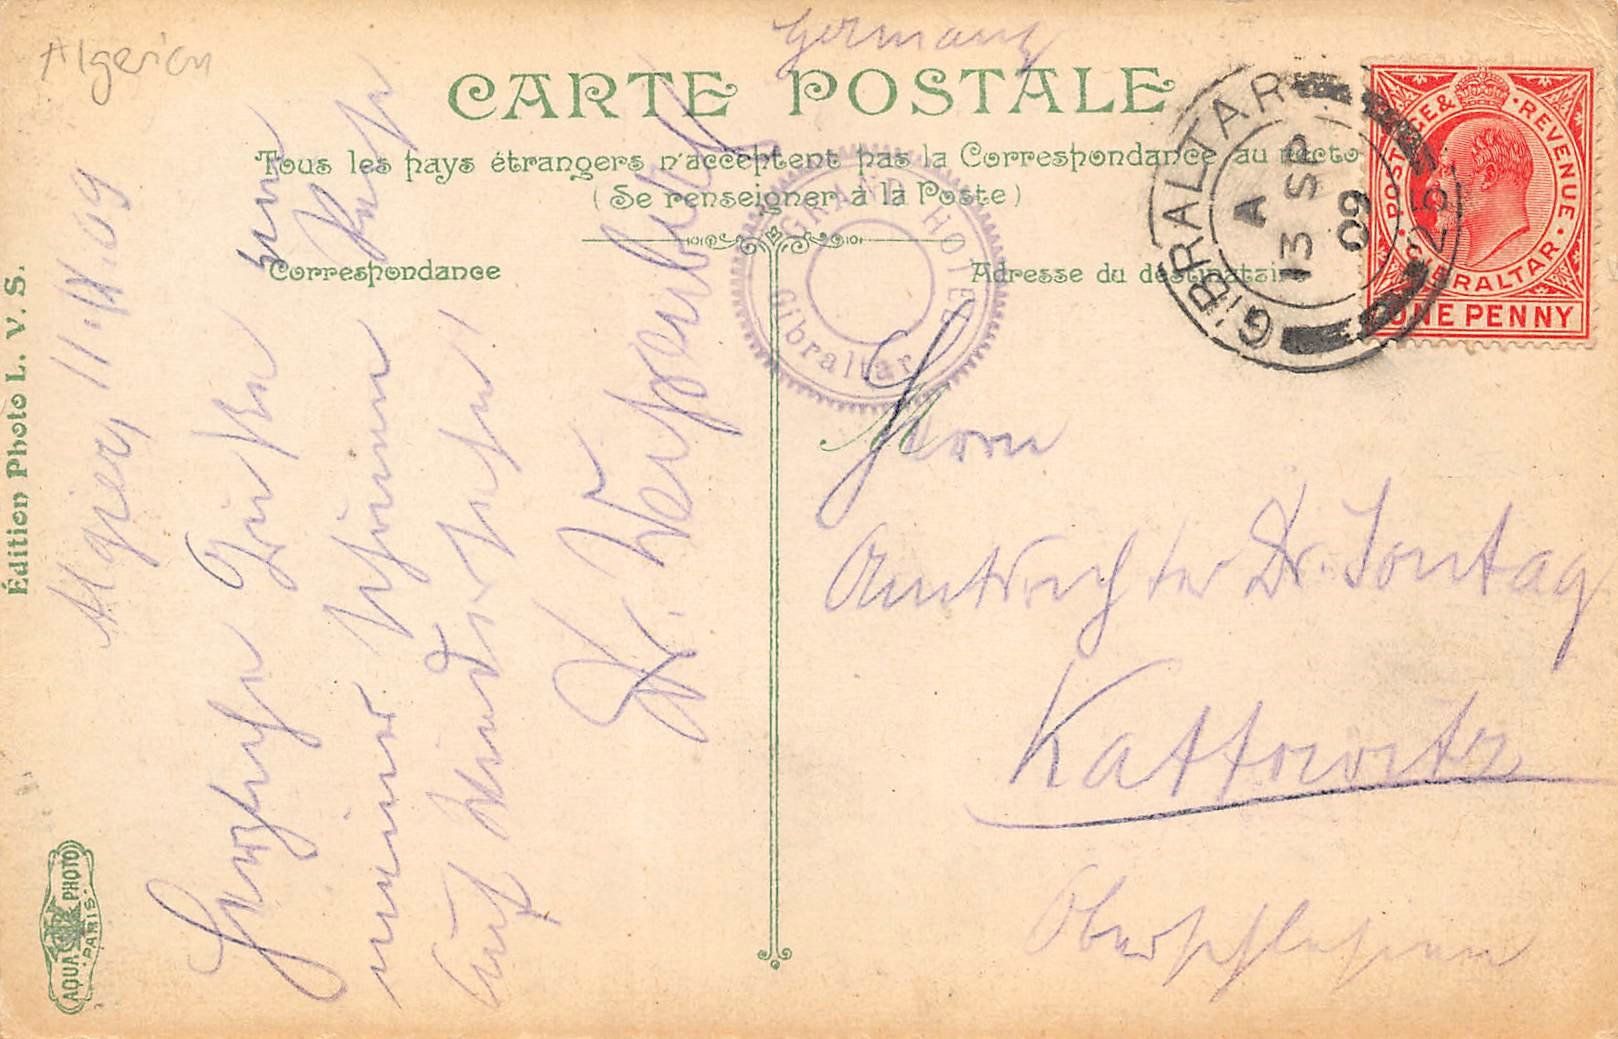 Algerien
Germany
CARTE POSTALE
Tous les pays étrangers n'acceptent pas la Correspondance au recto
(Se renseigner à la Poste)
Correspondance
Adresse du destinataire
GRAND HOTEL
Gibraltar
GIBRALTAR
A
13 SP
09
POSTAGE & REVENUE
GIBRALTAR
ONE PENNY
Édition Photo L. V. S.
AQUA PHOTO
PARIS
Algier, 11.IX.09
Herzliche Grüße von
meiner schönen Reise
Auf Wiedersehen!
Dr.
M
Herrn
Amtsrichter Dr. Sontag
Kattowitz
Oberschlesien